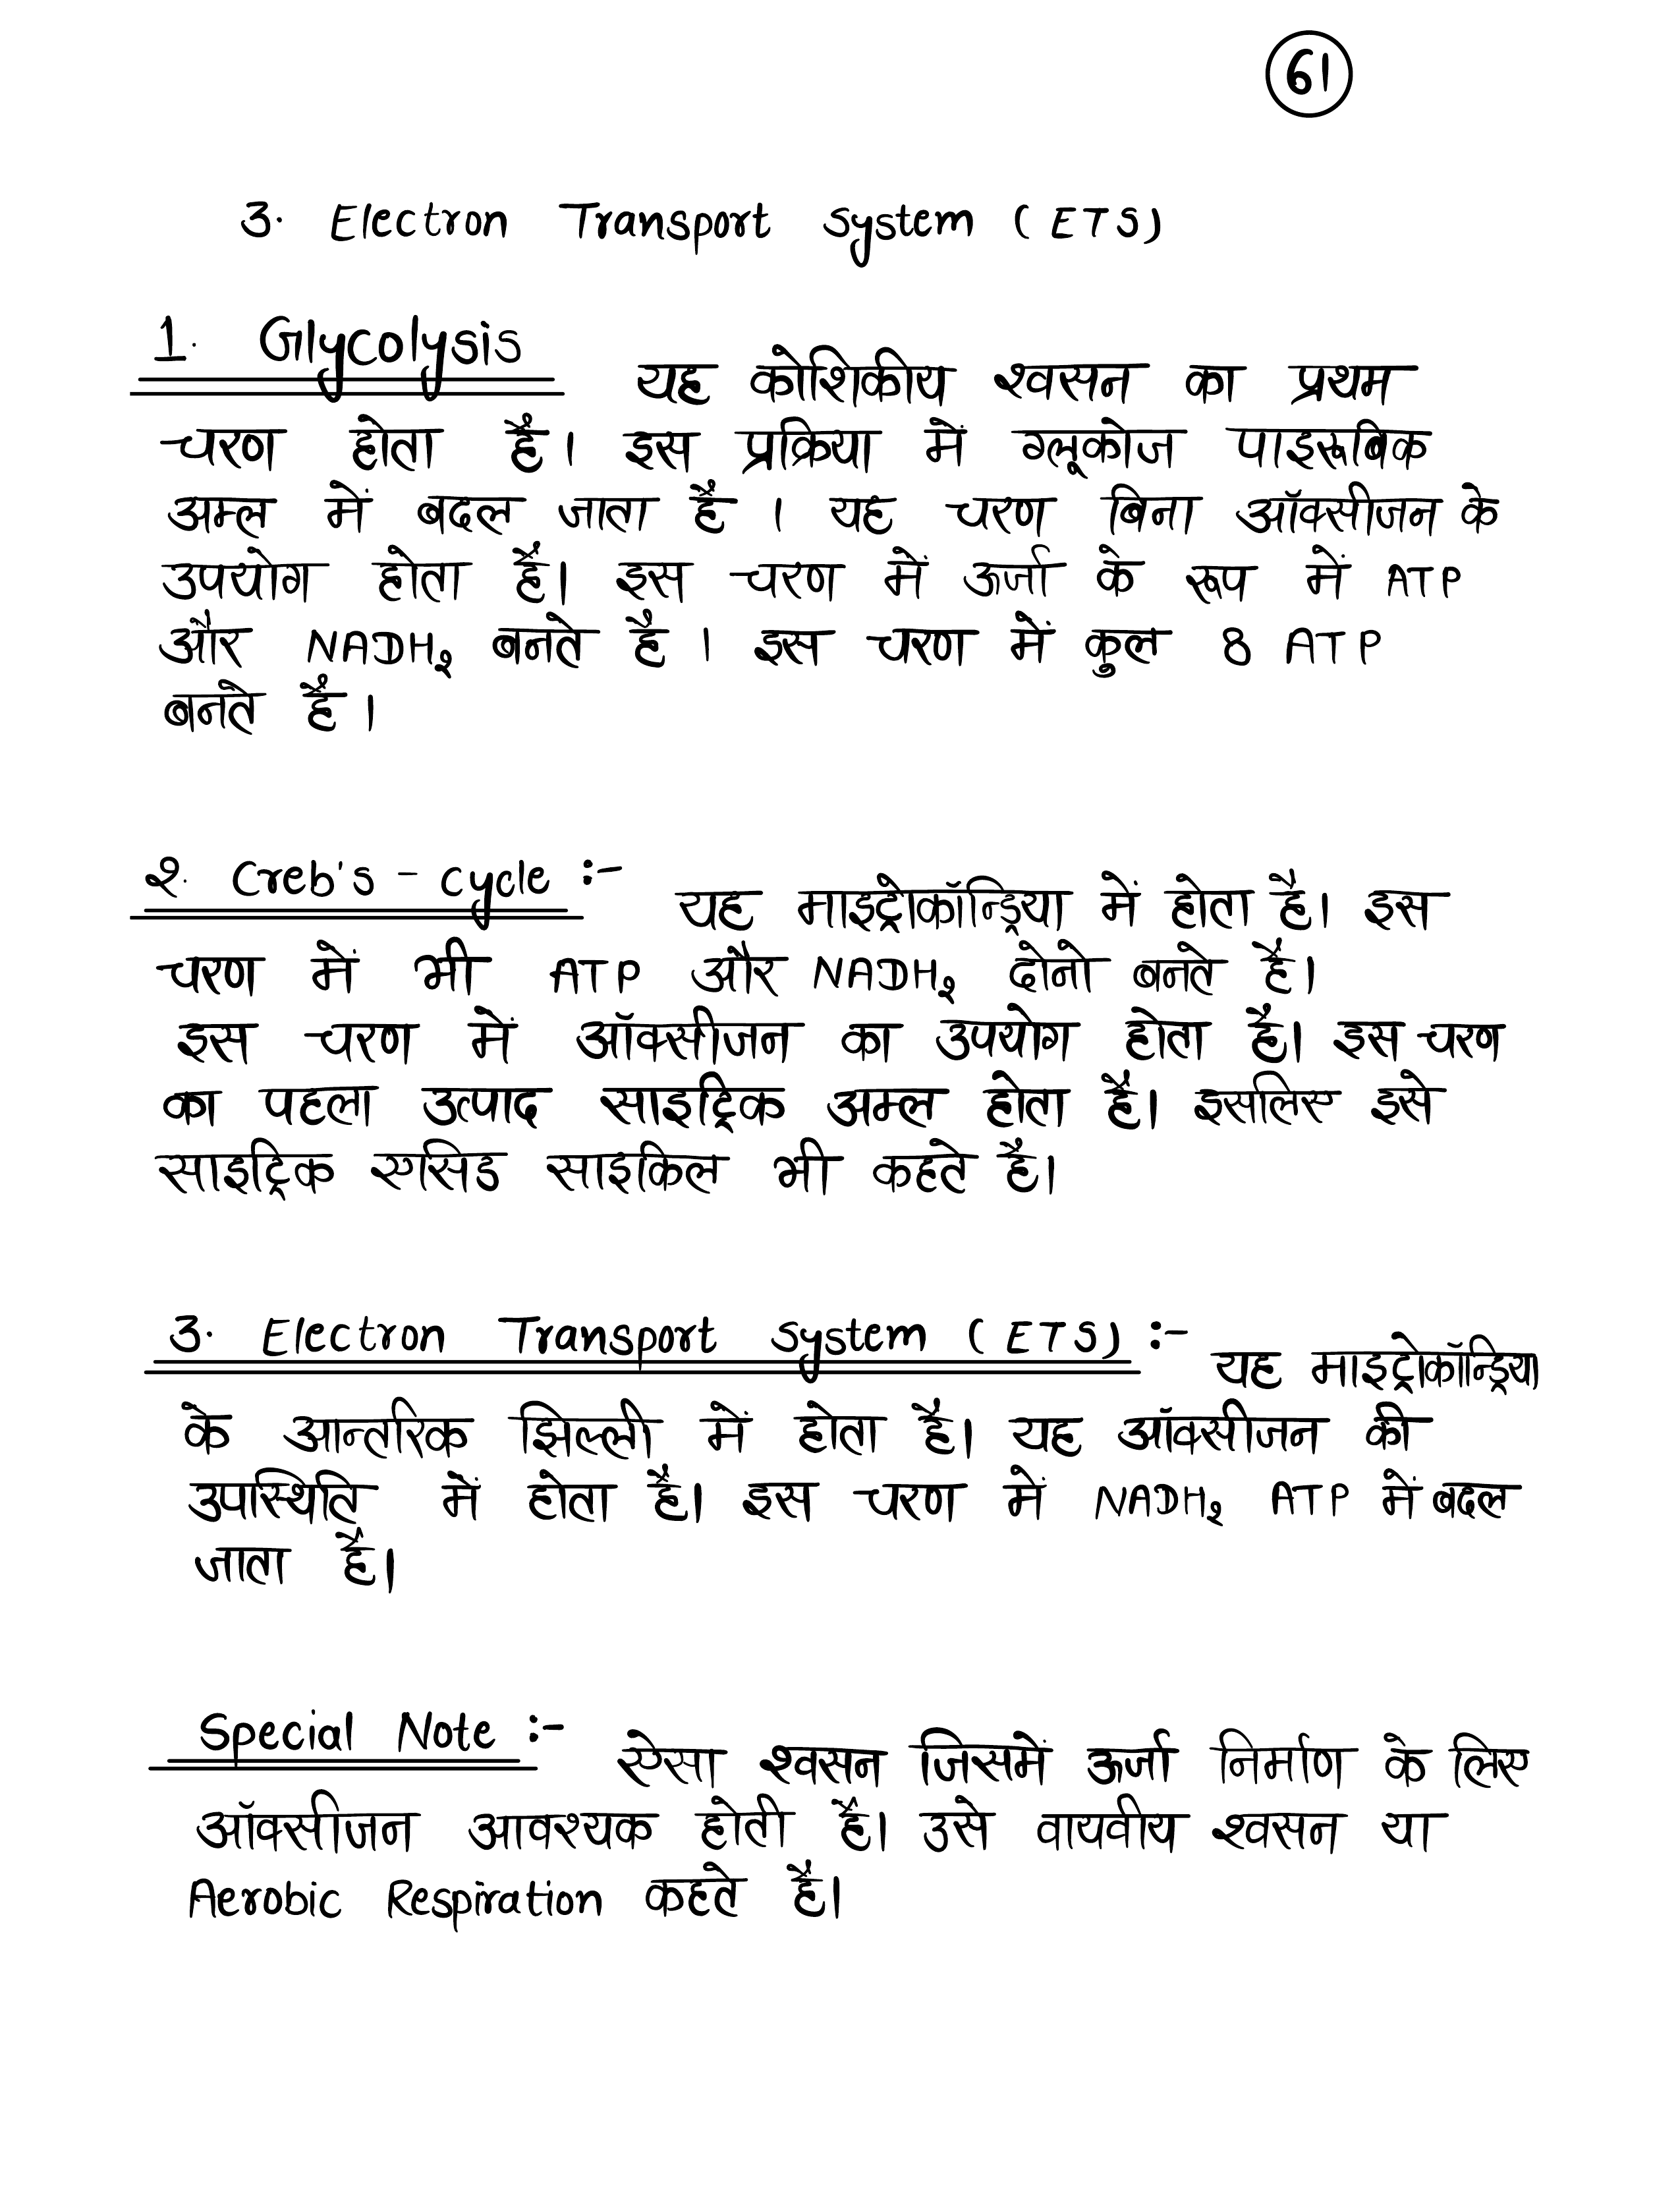 61
3. Electron Transport System (ETS)
1. Glycolysis यह कोशिकीय श्वसन का प्रथम
चरण होता है। इस प्रक्रिया में ग्लूकोज पाइरूबिक
अम्ल में बदल जाता है । यह चरण बिना ऑक्सीजन के
उपयोग होता है। इस चरण में ऊर्जा के रूप में ATP
और NADH₂ बनते है । इस चरण में कुल 8 ATP
बनते है ।
2. Creb's - cycle :- यह माइट्रोकॉन्ड्रिया में होता है। इस
चरण में भी ATP और NADH₂ दोनो बनते है।
इस चरण में ऑक्सीजन का उपयोग होता है। इस चरण
का पहला उत्पाद साइट्रिक अम्ल होता है। इसलिए इसे
साइट्रिक एसिड साइकिल भी कहते है।
3. Electron Transport System (ETS) :- यह माइट्रोकॉन्ड्रिया
के आन्तरिक झिल्ली में होता है। यह ऑक्सीजन की
उपस्थिति में होता है। इस चरण में NADH₂ ATP में बदल
जाता है।
Special Note :- ऐसा श्वसन जिसमें ऊर्जा निर्माण के लिए
ऑक्सीजन आवश्यक होती है। उसे वायवीय श्वसन या
Aerobic Respiration कहते है।